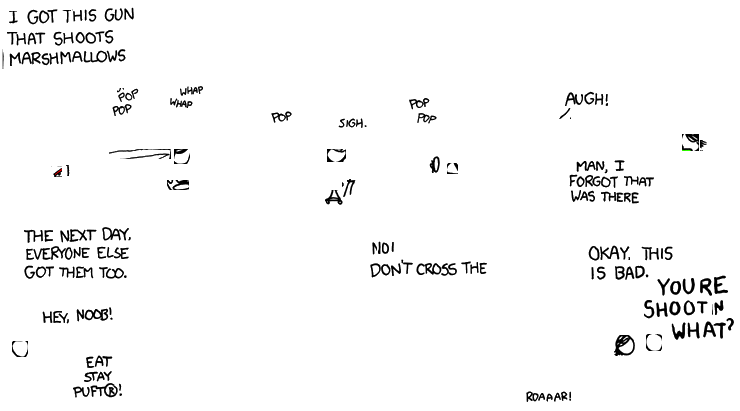 I GOT THIS GUN
THAT SHOOTS
MARSHMALLOWS
POP
POP
WHAP
WHAP
POP
SIGH.
POP
POP
AUGH!
MAN, I
FORGOT THAT
WAS THERE
THE NEXT DAY,
EVERYONE ELSE
GOT THEM TOO.
HEY, NOOB!
EAT
STAY
PUFT®!
NO!
DON'T CROSS THE
ROAAAR!
OKAY. THIS
IS BAD.
YOU'RE
SHOOTIN
WHAT?